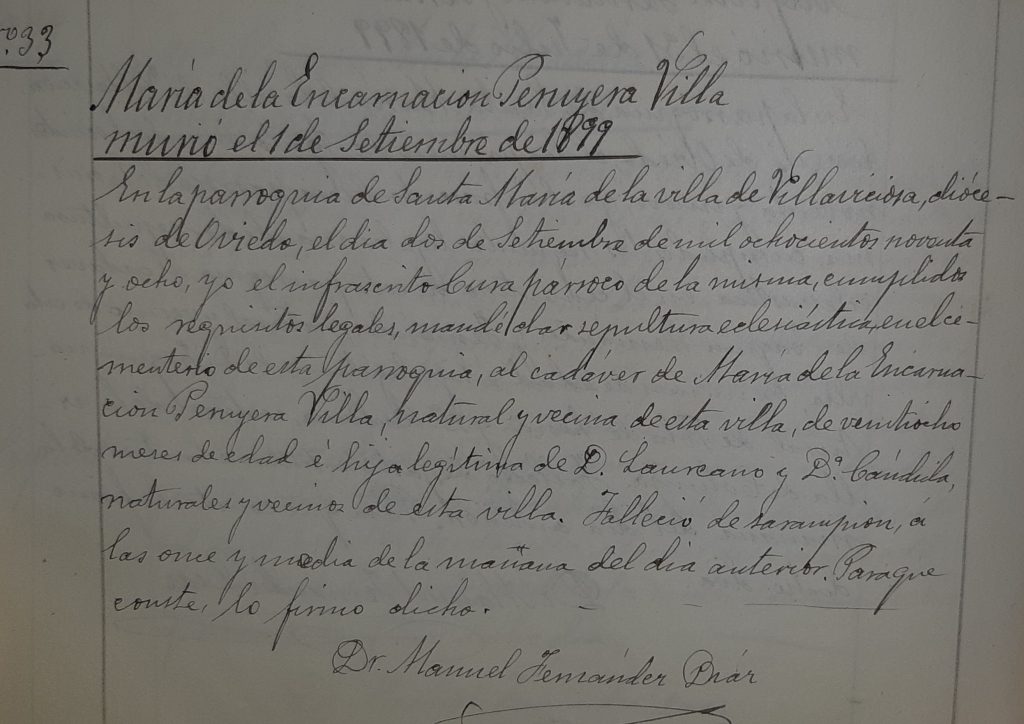 nº.33
María de la Encarnacion Peruyera Villa
murió el 1 de Setiembre de 1899
En la parroquia de Santa María de la villa de Villaviciosa, dióce-
sis de Oviedo, el dia dos de Setiembre de mil ochocientos noventa
y ocho, yo el infrascrito Cura párroco de la misma, cumplidos
los requisitos legales, mandé dar sepultura eclesiástica, en el ce-
menterio de esta parroquia, al cadáver de María de la Encarna-
cion Peruyera Villa, natural y vecina de esta villa, de veintiocho
meses de edad é hija legítima de D. Laureano y Dª. Cándida,
naturales y vecinos de esta villa. Falleció de sarampion, á
las once y media de la mañana del dia anterior. Para que
conste, lo firmo dicho.
Dr. Manuel Fernández Diáz